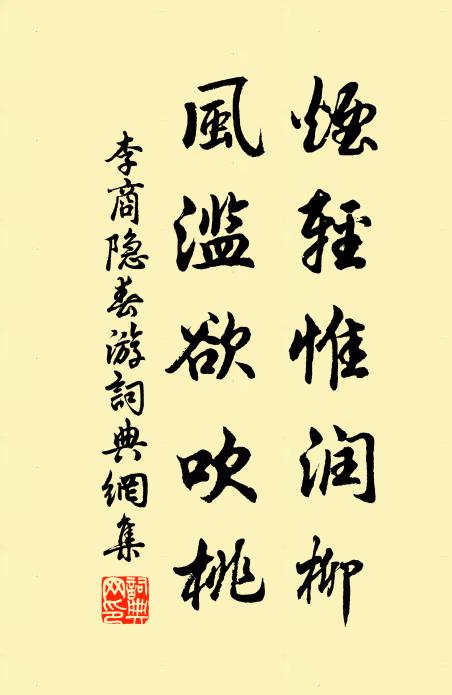 煙輕惟润柳
風滥欲吹桃
李商隐春游詞典網集
詞典网印